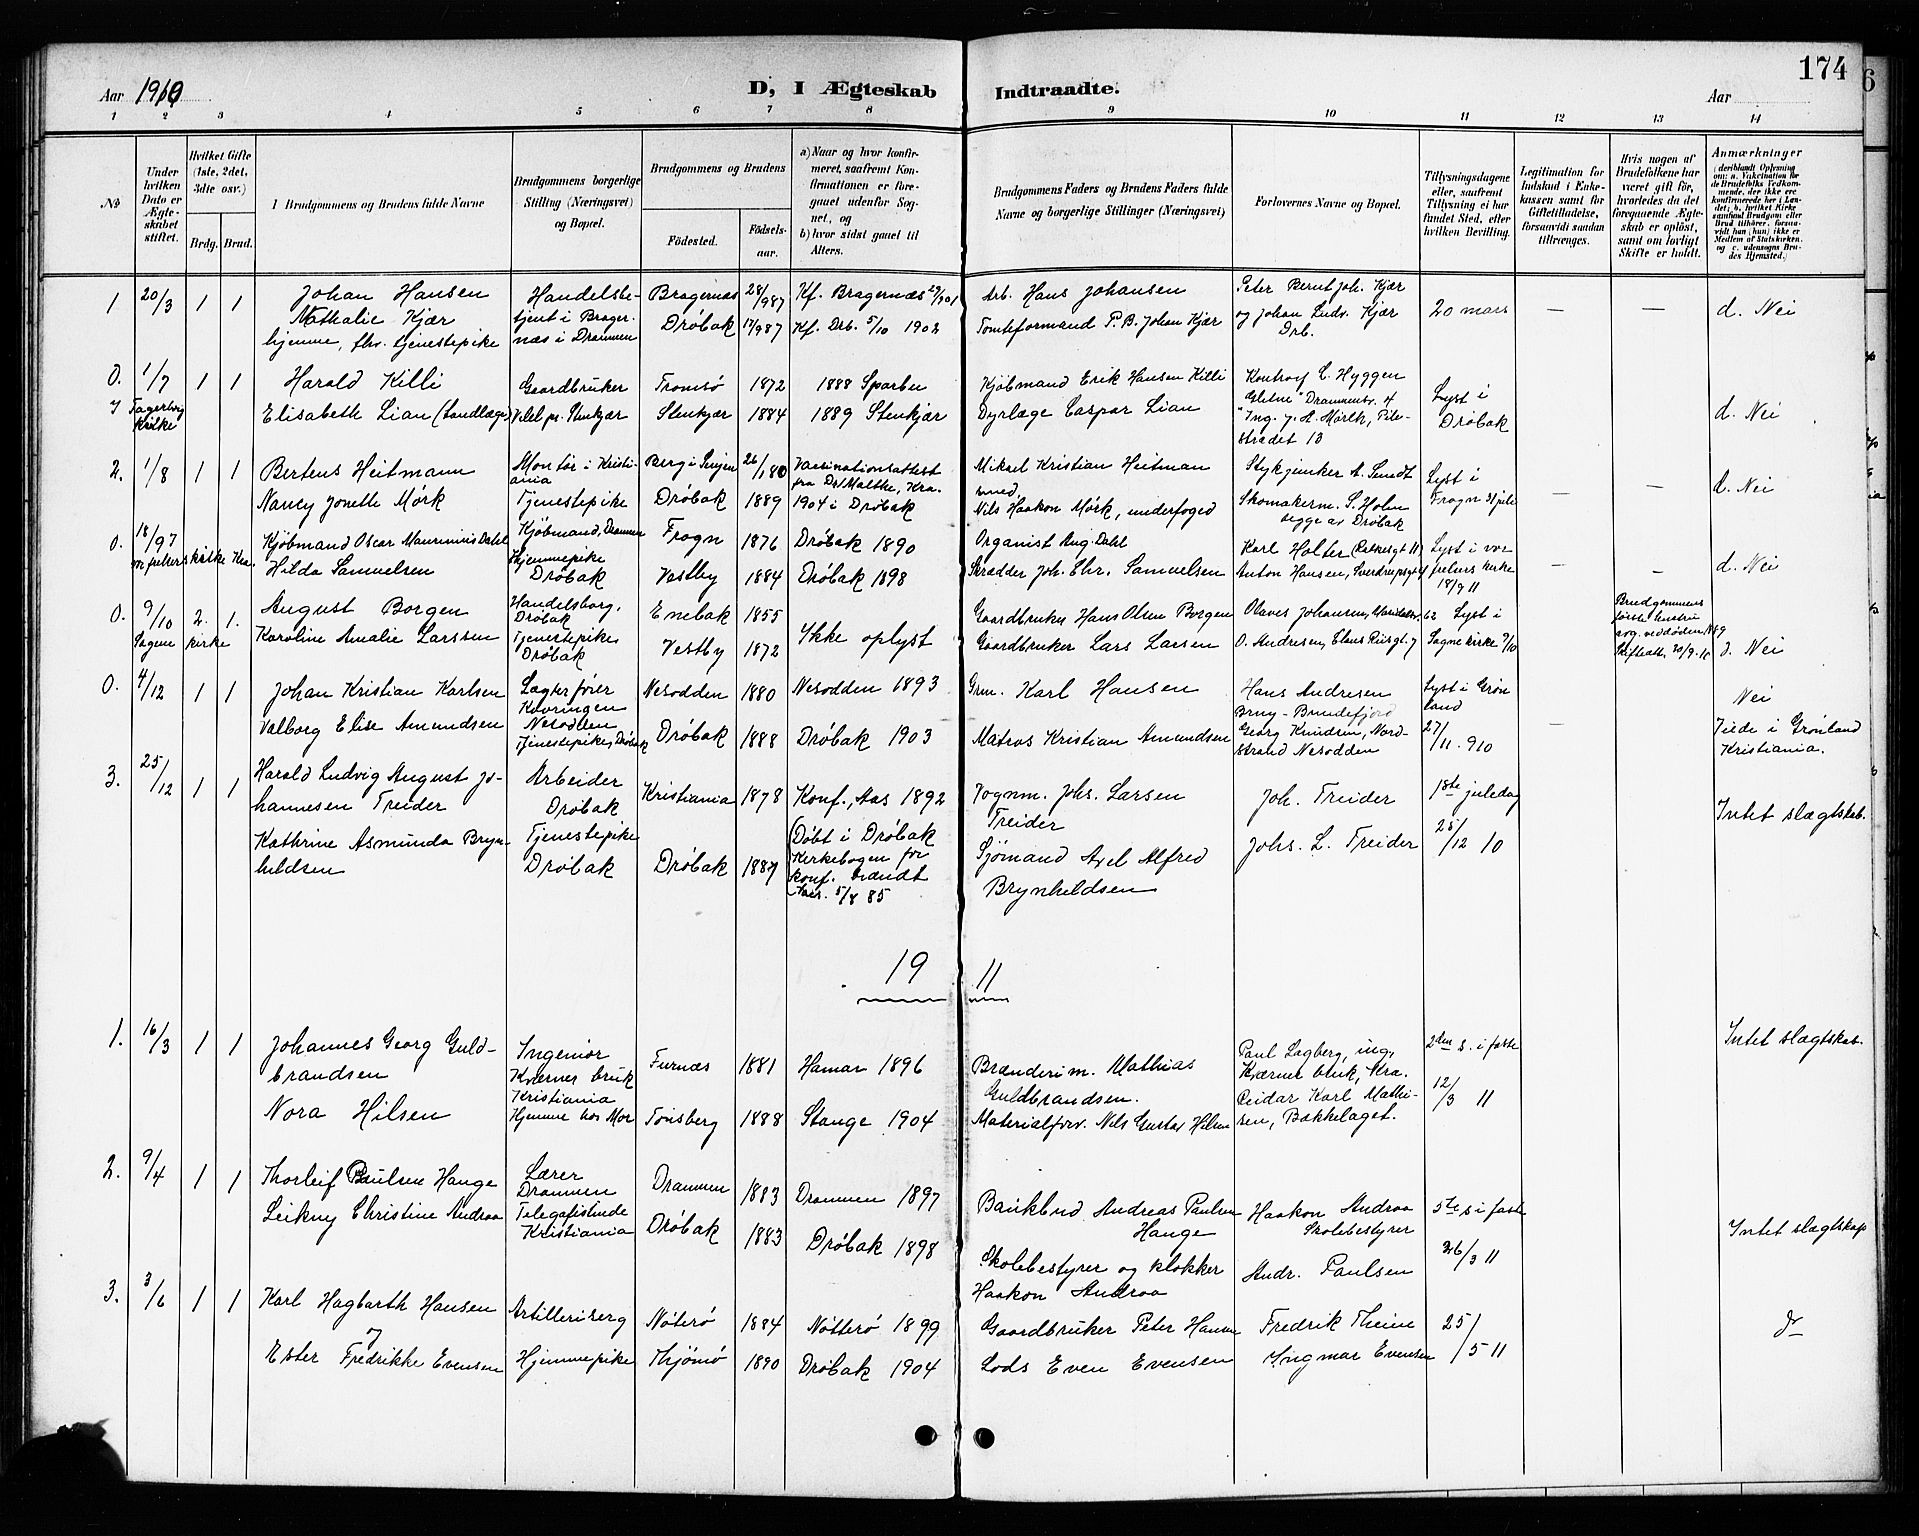 174
Aar 1910
D, I Ægteskab Indtraadte.
Aar
1 2 3 4 5 6 7 8 9 10 11 12 13 14
No
Under hvilken Dato er Ægteskabet stiftet.
Hvilket Gifte (1ste, 2det, 3die osv.)
Brdg. Brud.
I Brudgommens og Brudens fulde Navne
Brudgommens borgerlige Stilling (Næringsvei) og Bopæl.
Brudgommens og Brudens
Fødested.
Fødselsaar.
a) Naar og hvor konfirmeret, saafremt Konfirmationen er foregaaet udenfor Sognet, og
b) hvor sidst gaaet til Alters.
Brudgommens Faders og Brudens Faders fulde Navne og borgerlige Stillinger (Næringsvei)
Forlovernes Navne og Bopæl.
Tillysningsdagene eller, saafremt Tillysning ei har fundet Sted, efter hvilken Bevilling.
Legitimation for Indskud i Enkekassen samt for Giftetilladelse, forsaavidt saadan tiltrænges.
Hvis nogen af Brudefolkene har været gift før, hvorledes da det foregaaende Ægteskab er opløst, samt om lovligt Skifte er holdt.
Anmærkninger
1 20/3 1 1 Johan Hansen
Nathalie Kjær
hjemme, fhv. tjenestepike
Handelsbetjent i Bragernæs i Drammen
Bragernæs 28/9 87 Kf. Bragernæs
Drøbak 17/9 87 Kf. Drb. 5/10 1902
Arb. Hans Johansen
Tomteformand P. B. Johan Kjær
Peter Bernt Joh. Kjær
og Johan Ludv. Kjær
Drb.
20 mars — — d. Nei
O. 1/7 1 1 Harald Killi Gaardbruker Tromsø 1872 1888 Sparbu
Fagerborg kirke
Elisabeth Lian (Landlæge) Stenkjær 1884 1889 Stenkjær
Kjøbmand Erik Hansen Killi
Dyrlæge Caspar Lian
C. Hyggen
Drammensv. 4
Pilestrædet 13
Lyst i Drøbak
d. Nei
2. 1/8 1 1 Bertens Heitmann
Nancy Jonette Mørk
Montør i Kristiania
Tjenestepike
Berg i Senjen 26/1 80
Drøbak 1889
Vaccinationsattest fra Dr. Maltke, Kra.
1904 i Drøbak
Mikael Kristian Heitman
Nils Haakon Mørk, underfoged
Stykjunker A. Sundt
Skomakerm. S. Holm
begge av Drøbak
Lyst i Frogn 31 juli
— — d. Nei
O. 18/9 Kjøbmand Oscar Maurinius Dahl
Hilda Samuelsen
Kjøbmand, Drammen
Hjemmepike Drøbak
Frogn 1876 Drøbak 1890
Vestby 1884 Drøbak 1898
Organist Aug. Dahl
Skrædder Joh. Chr. Samuelsen
Karl Holter
Anton Hansen
Lyst i vor frelsers kirke
— — d. Nei
O. 9/10 2. 1. August Borgen
Sagene kirke
Karoline Amalie Larssen
Handelsborg. Drøbak
Tjenestepike, Drøbak
Enebak 1855
Vestby 1872
Ikke oplyst
Gaardbruker Hans Olsen Borgen
Gaardbruker Lars Larsen
Olaves Johansen, Maridalsv. 62
O. Andresen, Claus Riisgt. 7
Lyst i Sagene kirke 9/10
Brudgommens første hustru
d. Nei
O. 4/12 1 1 Johan Kristian Karlsen
Valborg Elise Amundsen
Kavringen Nesodden
Tjenestepike, Drøbak
Nesodden 1880 Nesodden 1893
Drøbak 1888 Drøbak 1903
Grm. Karl Hansen
Matros Kristian Amundsen
Hans Andresen
Georg Knudsen, Nordstrand Nesodden
Lyst i Grønland
27/11 910
— Nei
Viede i Grønland Kristiania.
3. 25/12 1 1 Harald Ludvig August Johannesen Treider
Kathrine Asmunda Brynhildsen
Arbeider Drøbak
Tjenestepike Drøbak
Kristiania 1878 Konf., Aas 1892
Drøbak 1887
(Døbt i Drøbak
Kirkebogen for konf. brændt
Jognm. Johs. Larsen Treider
Sjømand Axel Alfred Brynhildsen
Joh. Treider
Johs. L. Treider
1ste juledag
25/12 10
Intet slægtskab.
19 11
1. 16/3 1 1 Johannes Georg Guldbrandsen
Nora Hilsen
Ingeniør
Kværner bruk
Kristiania
Hjemme hos Mor
Furnæs 1881 Hamar 1896
Tønsberg 1888 Stange 1904
Brænderim. Mathias Guldbrandsen.
Materialforv. Nils Gustav Hilsen
Paul Lagberg, ing. Kværner bruk, Kra.
Reidar Karl Mathisen, Bækkelaget.
2den s. i faste
12/3 11
Intet slægtskab.
2. 9/4 1 1 Thorleif Paulsen Hauge
Leikny Christine Andraa
Lærer
Drammen
Telegrafistinde
Kristiania
Drammen 1883 Drammen 1897
Drøbak 1883 Drøbak 1898
Bankbud Andreas Paulsen Hauge
Skolebestyrer og klokker
Haakon Andraa
Haakon Andraa
Skolebestyrer
Andr. Paulsen
5te s i faste
26/3 11
Intet slægtskap
3. 3/6 1 1 Karl Hagbarth Hansen Artilleriserg Nøterø 1884 Nøtterø 1899
Ester Fredrikke Evensen Hjemmepike Thjømø 1890 Drøbak 1904
Gaardbruker Peter Hansen
Lods Even Evensen
Fredrik Theine
Ingmar Evensen
25/5 11